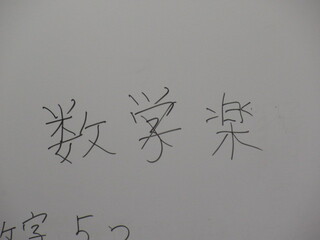 数学楽
字 5つ